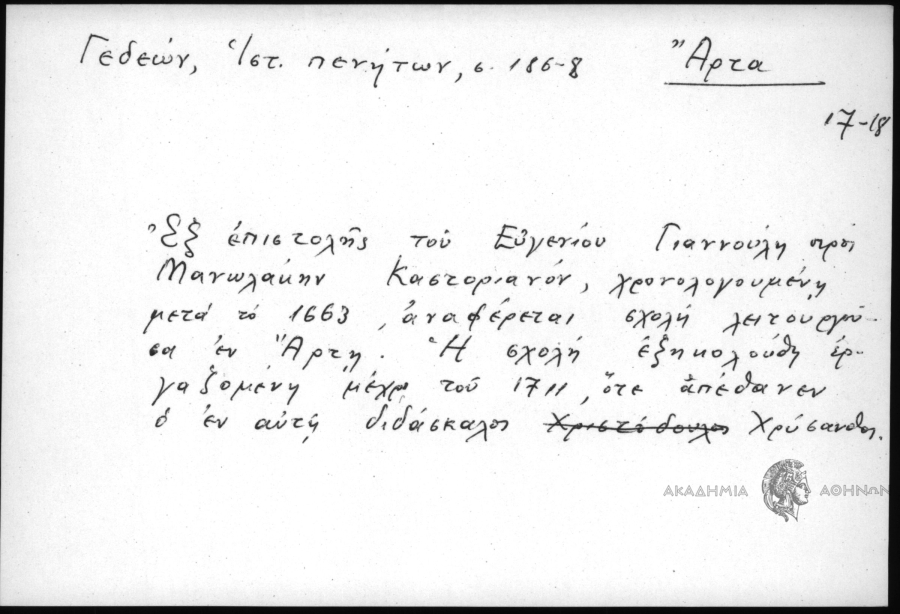 Γεδεών, Ἱστ. πενήτων, σ. 186-8
Ἄρτα
17-18
Ἐξ ἐπιστολῆς τοῦ Εὐγενίου Γιαννούλη πρὸς
Μανωλάκην Καστοριανόν, χρονολογουμένη
μετά τό 1663, ἀναφέρεται σχολή λειτουργοῦ-
σα ἐν Ἄρτῃ. Ἡ σχολή ἐξηκολούθη ἐρ-
γαζομένη μέχρι τοῦ 1711, ὅτε ἀπέθανεν
ὁ ἐν αὐτῇ διδάσκαλος Χριστόδουλος Χρύσανθος.
ΑΚΑΔΗΜΙΑ ΑΘΗΝΩΝ